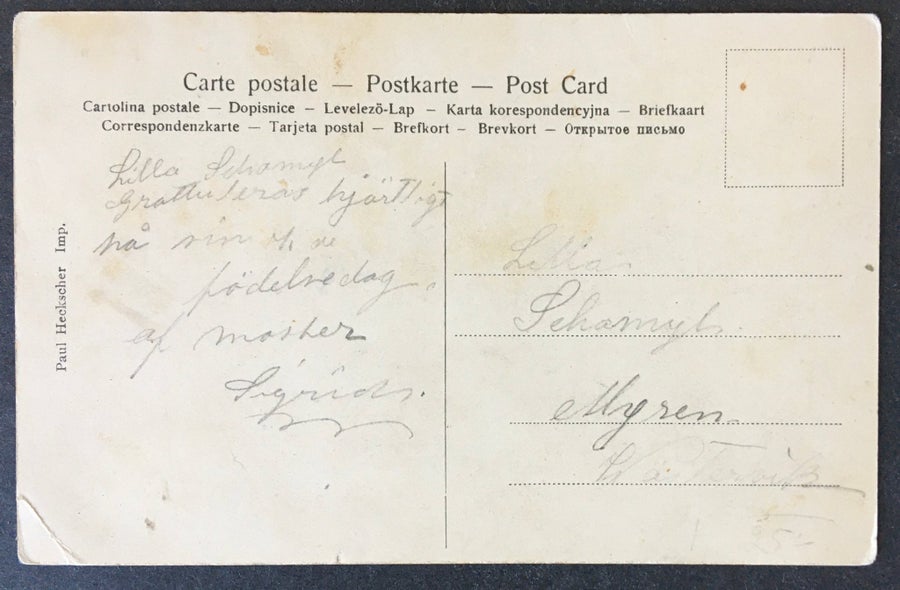 Carte postale — Postkarte — Post Card
Cartolina postale — Dopisnice — Levelezö-Lap — Karta korespondencyjna — Briefkaart
Correspondenzkarte — Tarjeta postal — Brefkort — Brevkort — Открытое письмо
Paul Heckscher Imp.
Lilla Schamyl
Grattuleras hjärtligt
på sin
födelsedag.
af moster
Sigrid.
Lilla
Schamyl.
Myren
Wästervik